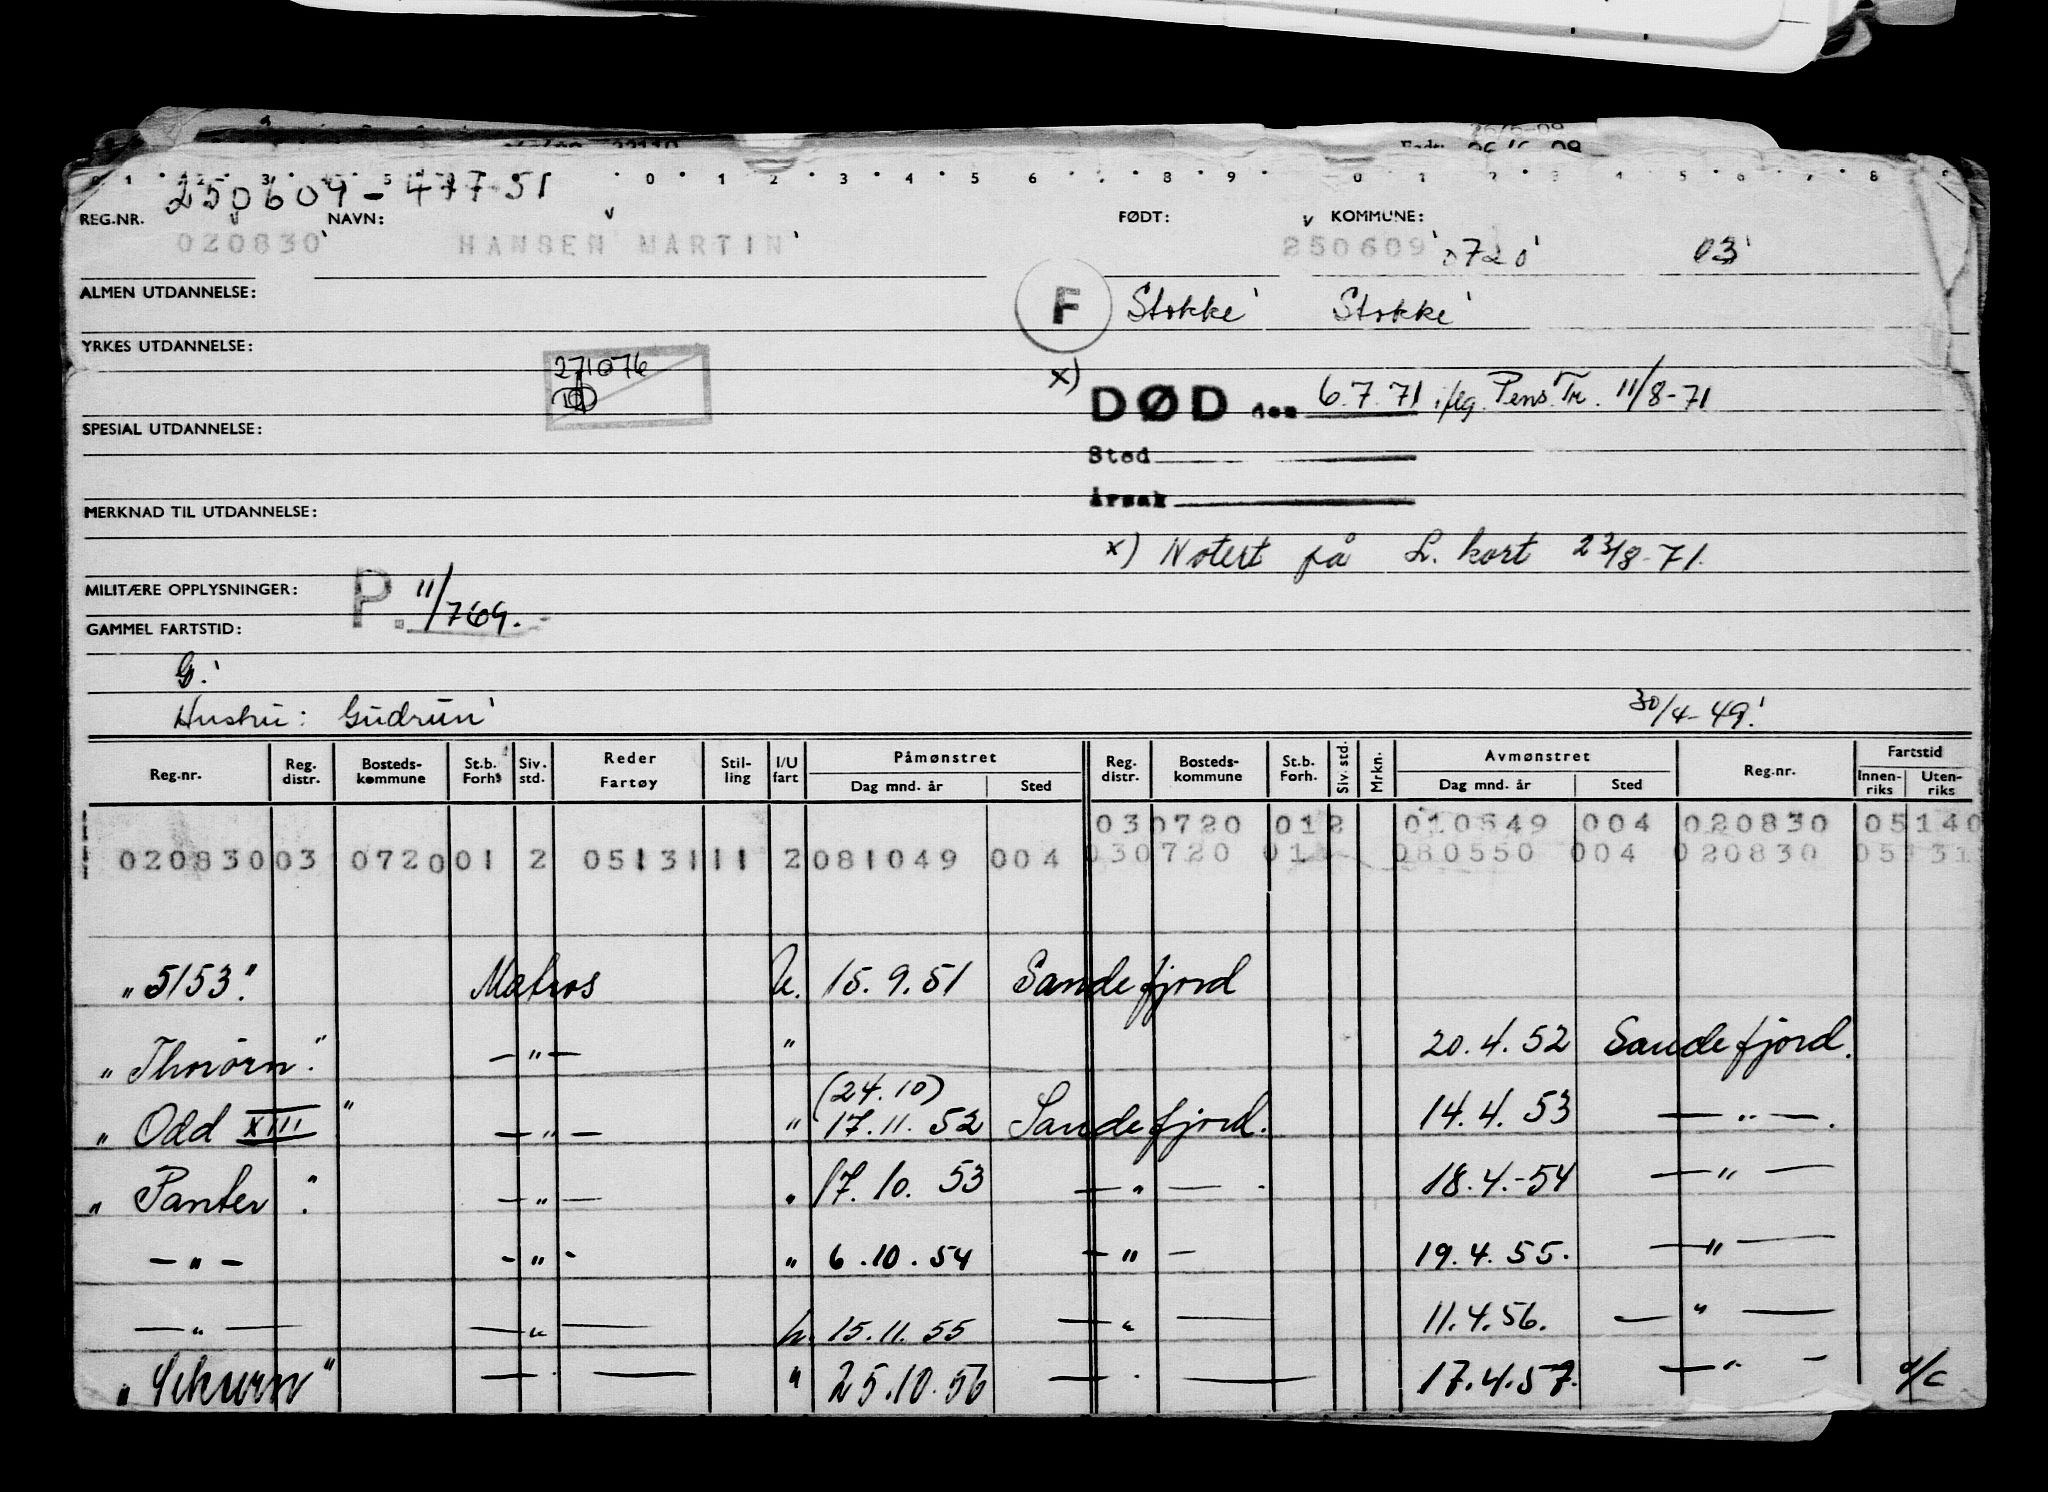 250609-47751
REG.NR. NAVN: FØDT: KOMMUNE:
020830 HANSEN MARTIN 250609 0720 03
ALMEN UTDANNELSE: F Stokke Stokke
YRKES UTDANNELSE:
271076
x) DØD den 6.7.71 iflg. Pens.Tr. 11/8-71
SPESIAL UTDANNELSE:
Sted
Årsak
MERKNAD TIL UTDANNELSE:
x) Notert på L. kort 23/8-71.
MILITÆRE OPPLYSNINGER: P. 11/769.
GAMMEL FARTSTID:
G.
Hustru: Gudrun 30/4-49.
Reg.nr. Reg. distr. Bosteds-kommune St.b. Forh. Siv. std. Reder Fartøy Stil-ling I/U fart Påmønstret Dag mnd. år Sted Reg. distr. Bosteds-kommune St.b. Forh. Siv. std. Mrkn. Avmønstret Dag mnd. år Sted Reg.nr. Fartstid Innen-riks Uten-riks
030720 012 010549 004 020830 05140
020830 03 0720 01 2 05131 11 2 081049 004 030720 01 080550 004 020830 05131
"5153". Matros U. 15.9.51 Sandefjord
"Thorörn". — " — " 20.4.52 Sandefjord.
(24.10)
"Odd XIII" — " — " 17.11.52 Sandefjord. 14.4.53 — " —.
"Panter". — " — " 17.10.53 — " —. 18.4.-54 — " —
— " — — " — " 6.10.54 — " — 19.4.55. — " —
— " — — " — U. 15.11.55 — " — 11.4.56. — " —
— — " 25.10.56 — — 17.4.57. — " —